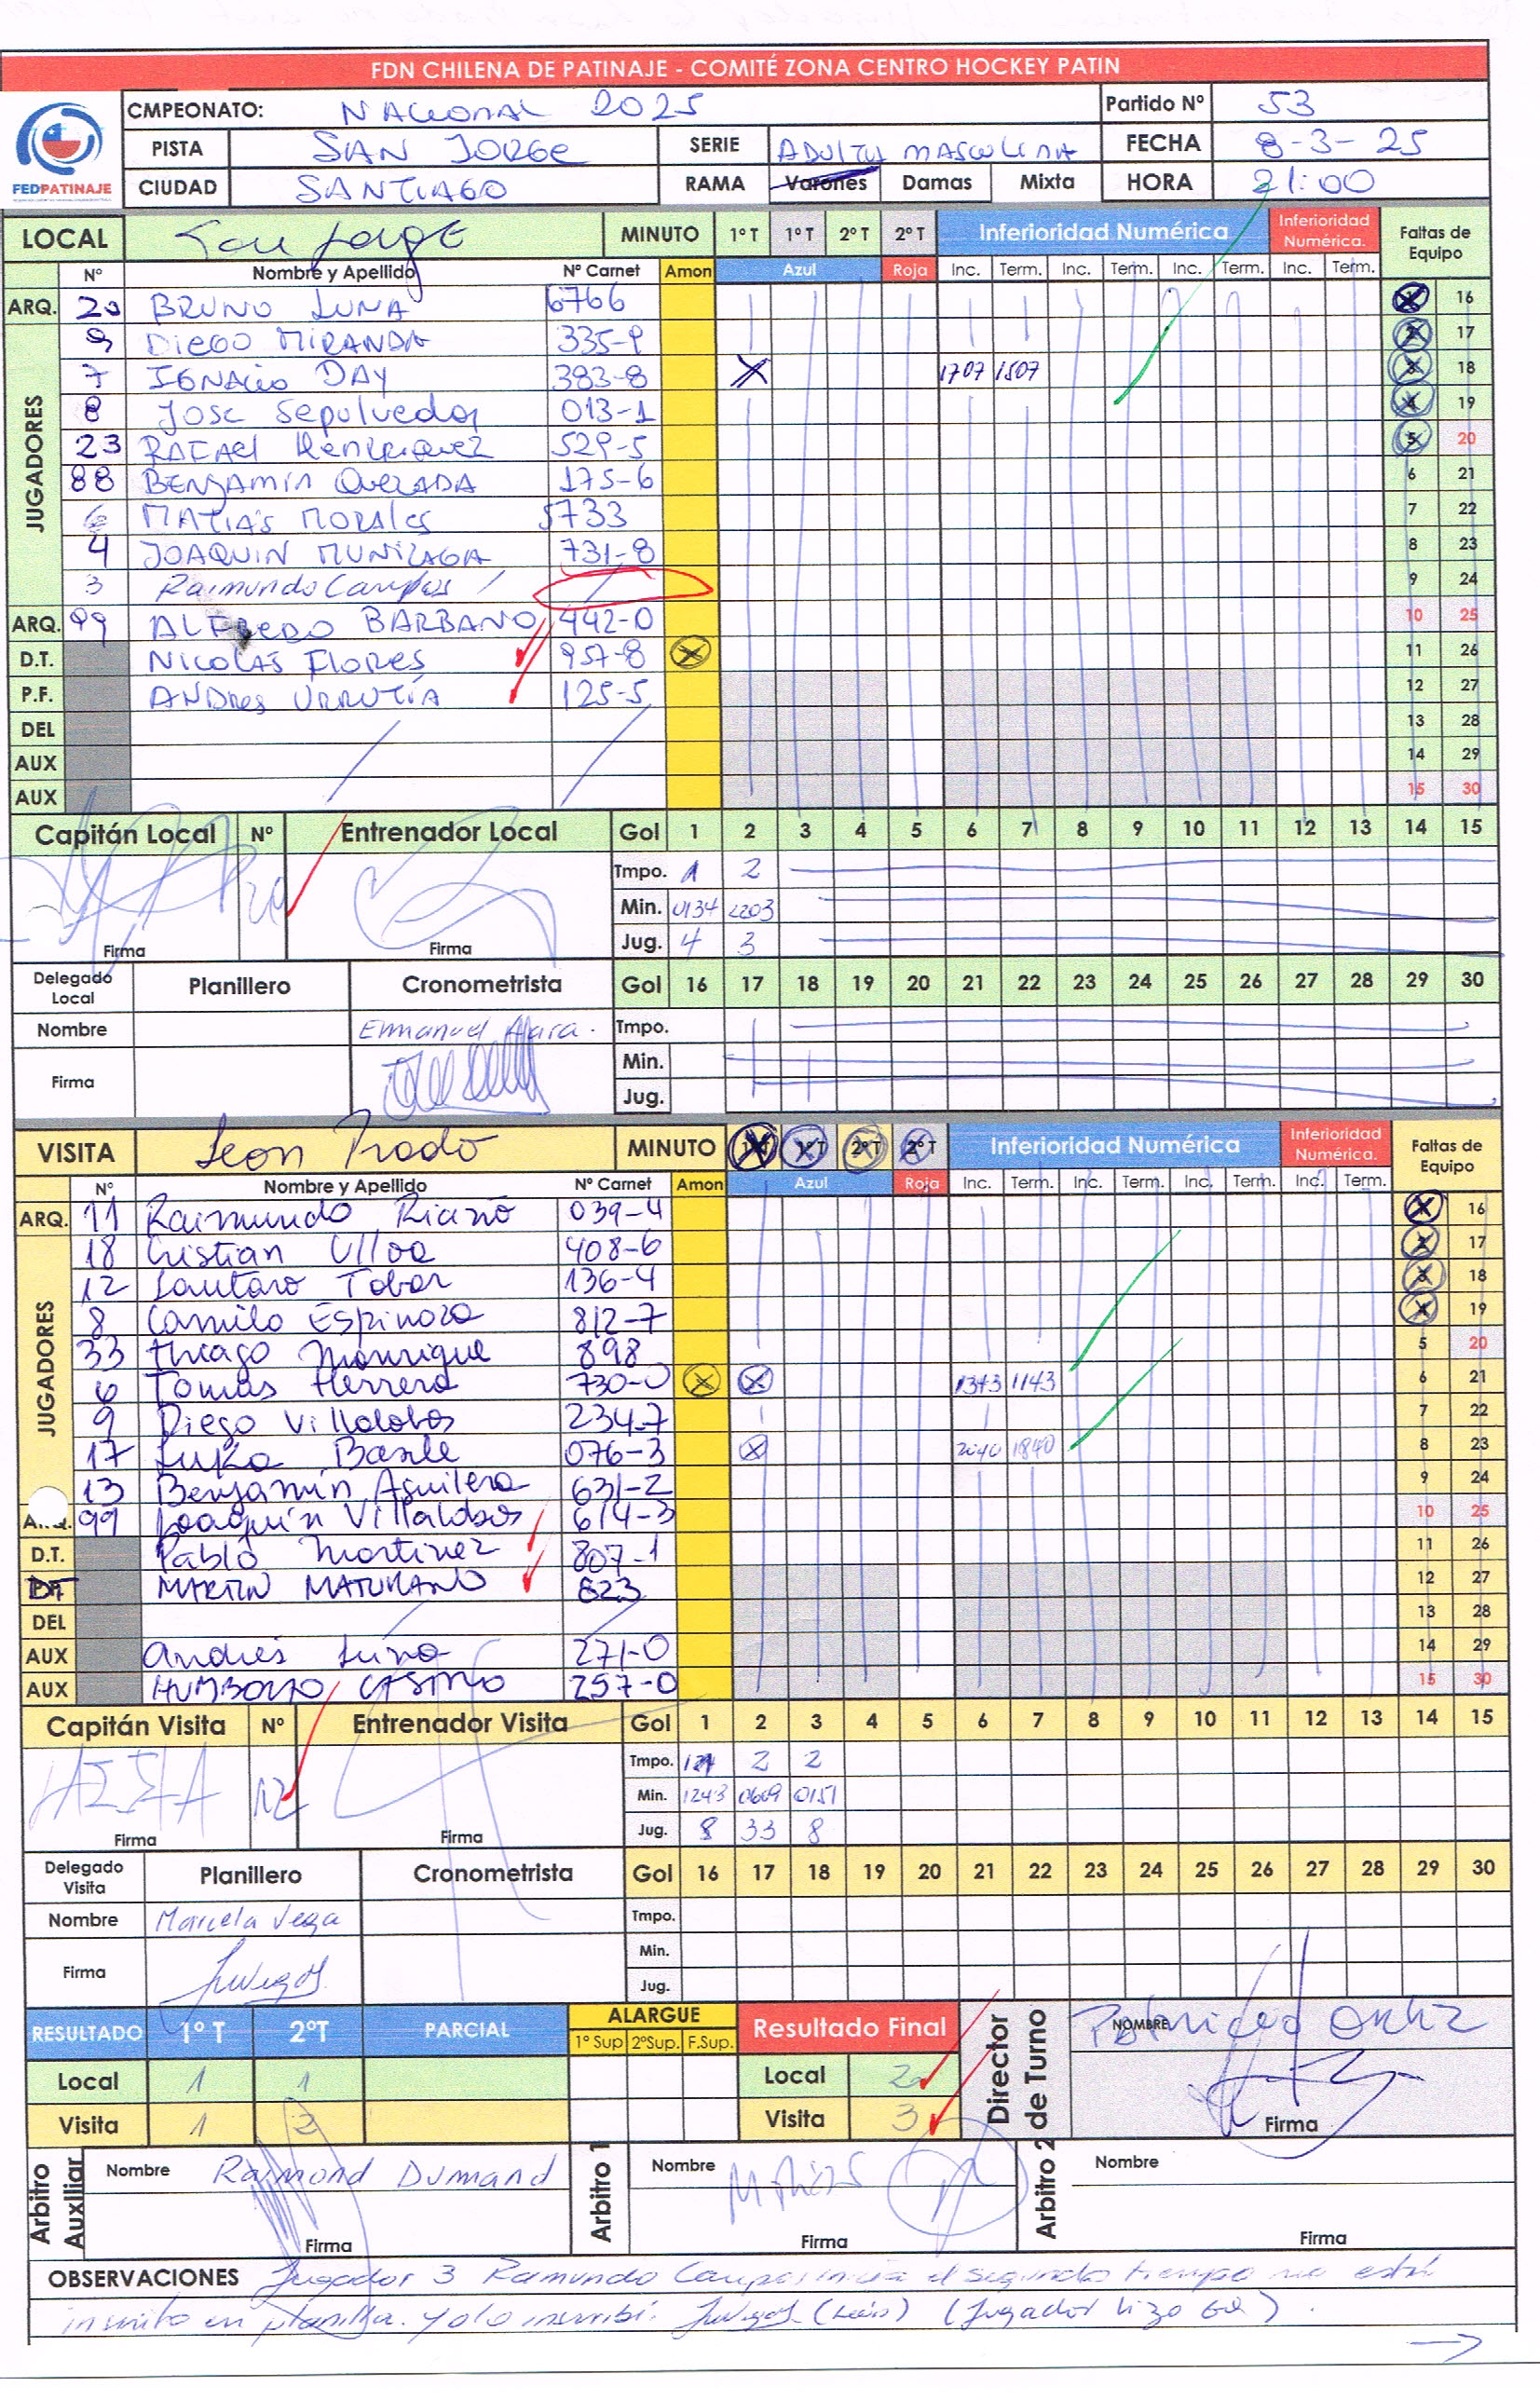 FDN CHILENA DE PATINAJE - COMITÉ ZONA CENTRO HOCKEY PATIN
FEDPATINAJE
CMPEONATO: NACIONAL 2025 Partido Nº 53
PISTA SAN JORGE SERIE ADULTA MASCULINA FECHA 8-3-25
CIUDAD SANTIAGO RAMA Varones Damas Mixta HORA 21:00
LOCAL San Jorge MINUTO 1º T 1º T 2º T 2º T Inferioridad Numérica Inferioridad Numérica. Faltas de Equipo
Nº Nombre y Apellido Nº Carnet Amon Azul Roja Inc. Term. Inc. Term. Inc. Term. Inc. Term.
ARQ. 20 BRUNO LUNA 6766 16
JUGADORES
9 DIEGO MIRANDA 335-9 17
7 IGNACIO DAY 383-8 X 1707 1507 3 18
8 Jose Sepulveda 013-1 4 19
23 RAFAEL Henriquez 529-5 5 20
88 BENJAMIN QUEZADA 175-6 6 21
6 MATIAS MORALES 5733 7 22
4 JOAQUIN MUNIZAGA 731-8 8 23
3 Raimundo Campos / / 9 24
ARQ. 99 ALFREDO BARBANO 442-0 10 25
D.T. NICOLAS FLORES 957-8 X 11 26
P.F. ANDRES URRUTIA 125-5 12 27
DEL 13 28
AUX 14 29
AUX 15 30
Capitán Local Nº Entrenador Local Gol 1 2 3 4 5 6 7 8 9 10 11 12 13 14 15
Tmpo. 1 2
20 Min. 0134 2203
Firma Firma Jug. 4 3
Delegado Local Planillero Cronometrista Gol 16 17 18 19 20 21 22 23 24 25 26 27 28 29 30
Nombre Emmanuel Tmpo.
Min.
Firma Jug.
VISITA Leon Prado MINUTO 1º T 1º T 2º T 2º T Inferioridad Numérica Inferioridad Numérica. Faltas de Equipo
Nº Nombre y Apellido Nº Carnet Amon Azul Roja Inc. Term. Inc. Term. Inc. Term. Inc. Term.
ARQ. 11 Raimundo Riaño 039-4 16
JUGADORES
18 Cristian Ulloa 408-6 17
12 Lautaro Tobar 136-4 3 18
8 Camilo Espinoza 812-7 19
33 Thiago Manrique 898 5 20
6 Tomas Herrera 730-0 X X 1343 1143 6 21
9 Diego Villalobos 234-7 7 22
17 Luka Basile 076-3 X 2040 1840 8 23
13 Benjamin Aguilera 631-2 9 24
ARQ. 99 Joaquin Villalobos 614-3 10 25
D.T. Pablo Martinez 807-1 11 26
MARTIN MATURANO 823 12 27
DEL 13 28
AUX Andrés Luna 271-0 14 29
AUX HUMBERTO CASTRO 257-0 15 30
Capitán Visita Nº Entrenador Visita Gol 1 2 3 4 5 6 7 8 9 10 11 12 13 14 15
Tmpo. 1 2 2
12 Min. 1243 0609 0151
Firma Firma Jug. 8 33 8
Delegado Visita Planillero Cronometrista Gol 16 17 18 19 20 21 22 23 24 25 26 27 28 29 30
Nombre Marcela Vega Tmpo.
Min.
Firma Jug.
RESULTADO 1º T 2ºT PARCIAL ALARGUE Resultado Final Director de Turno NOMBRE Patricio Ortiz
1º Sup 2ºSup. F.Sup.
Local 1 1 Local 2
Visita 1 2 Visita 3 Firma
Arbitro Auxiliar Nombre Raimond Dumand Arbitro 1 Nombre Matias Arbitro 2 Nombre
Firma Firma Firma
OBSERVACIONES Jugador 3 Raimundo Campos inicia el segundo tiempo no está
inscrito en planilla. yo lo inscribí. (Jugador hizo Gol).
→